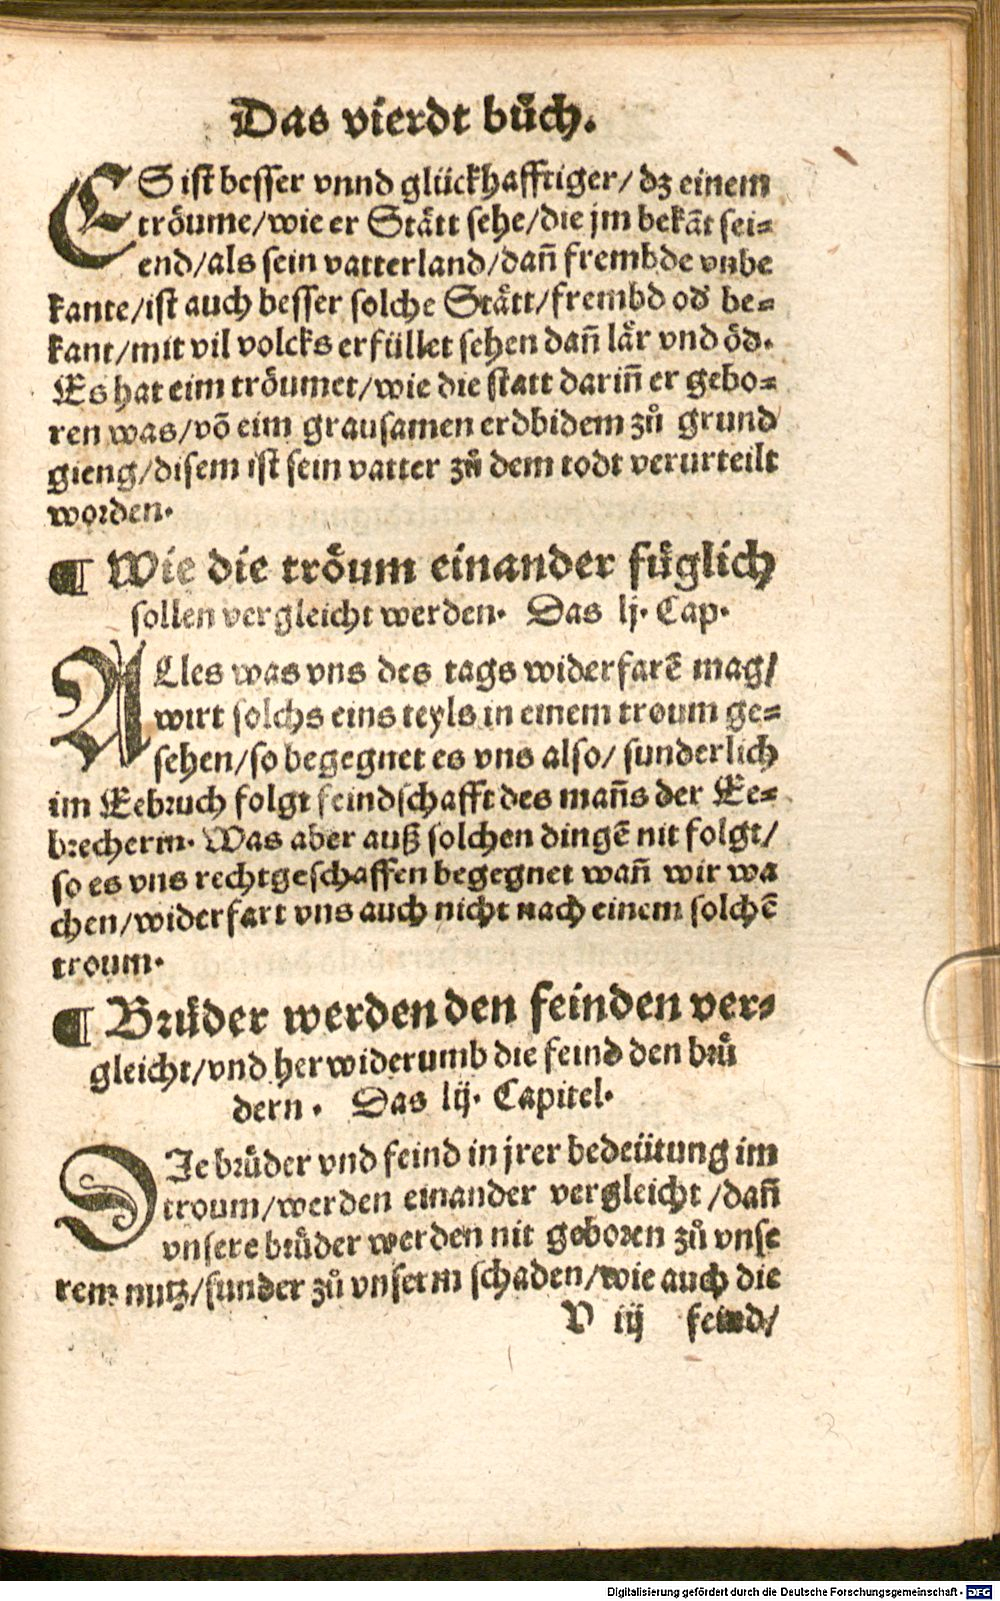 Das vierdt bůch.
ES ist besser vnnd glückhafftiger/ dz einem
tröume/wie er Stätt sehe/die jm bekāt sei⸗
end/als sein vatterland/dañ frembde vnbe
kante/ist auch besser solche Stätt/frembd od' be⸗
kant/mit vil volcks erfüllet sehen dañ lär vnd öd.
Es hat eim tröumet/wie die statt dariñ er gebo⸗
ren was/vō eim grausamen erdbidem zů grund
gieng/disem ist sein vatter zů dem todt verurteilt
worden.
¶ Wie die tröum einander füglich
sollen vergleicht werden. Das lj. Cap.
ALles was vns des tags widerfarē mag/
wirt solchs eins teyls in einem troum ge⸗
sehen/so begegnet es vns also/ sunderlich
im Eebruch folgt feindschafft des mañs der Ee⸗
brecherin. Was aber auß solchen dingē nit folgt/
so es vns rechtgeschaffen begegnet wañ wir wa
chen/widerfart vns auch nicht nach einem solchē
troum.
¶ Brüder werden den feinden ver⸗
gleicht/vnd herwiderumb die feind den brů
dern. Das lij. Capitel.
DIe brůder vnd feind in jrer bedeütung im
troum/werden einander vergleicht /dañ
vnsere brůder werden nit geboren zů vnse
rem nutz/sunder zů vnserm schaden/wie auch die
V iij feind/
Digitalisierung gefördert durch die Deutsche Forschungsgemeinschaft - DFG